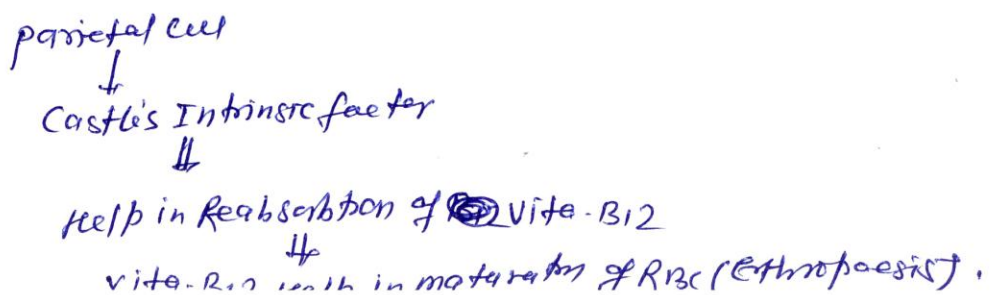 parietal cell
↓
Castle's Intrinsic factor
⇓
Help in Reabsorbtion of Vita-B12
⇓
Vita-B12 help in maturation of RBC (Erthropoesis).